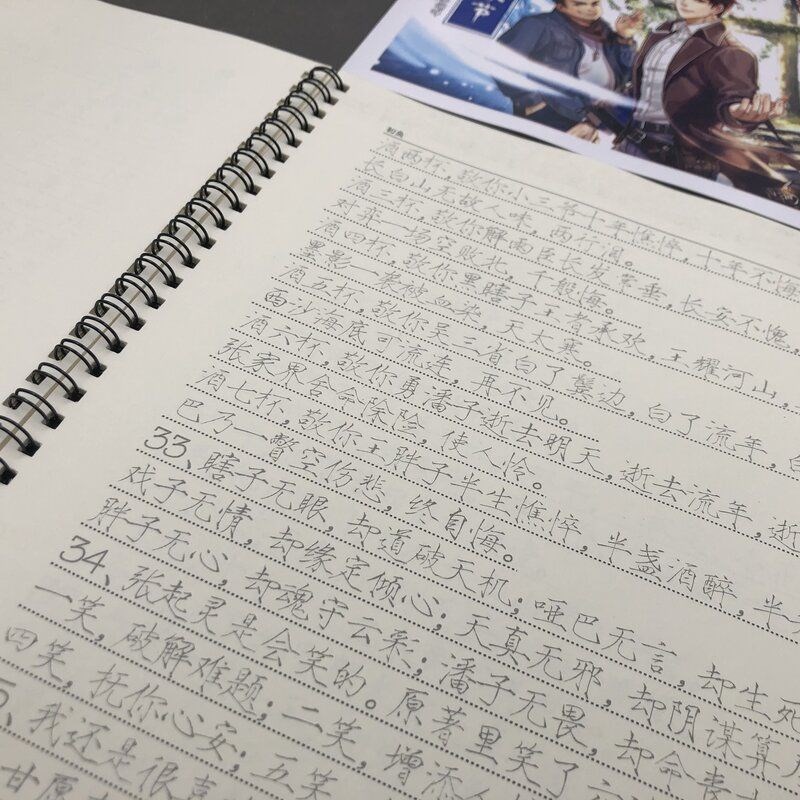 节
酒两杯,敬你小三爷十年憔悴,十年不悔
长白山无故人味,两行泪。
酒三杯,敬你解雨臣长发常垂,长安不愧,
对弈一场空败北,千般悔。
酒四杯,敬你黑瞎子王者承欢,王耀河山,
墨影一袭似血染,天太寒。
酒五杯,敬你吴三省白了鬓边,白了流年,
西沙海底可流连,再不见。
酒六杯,敬你勇潘子逝去明天,逝去流年,逝
张家界舍命除险,使人怜。
酒七杯,敬你王胖子半生憔悴,半盏酒醉,半
巴乃一瞥空伤悲,终自悔。
33、瞎子无眼,却道破天机;哑巴无言,却生死
戏子无情,却缘定倾心;天真无邪,却阴谋算
胖子无心,却魂守云彩;潘子无畏,却命丧
34、张起灵是会笑的。原著里笑了六
一笑,破解难题;二笑,增添
四笑,抚你心安;五笑
、我还是很喜
甘原